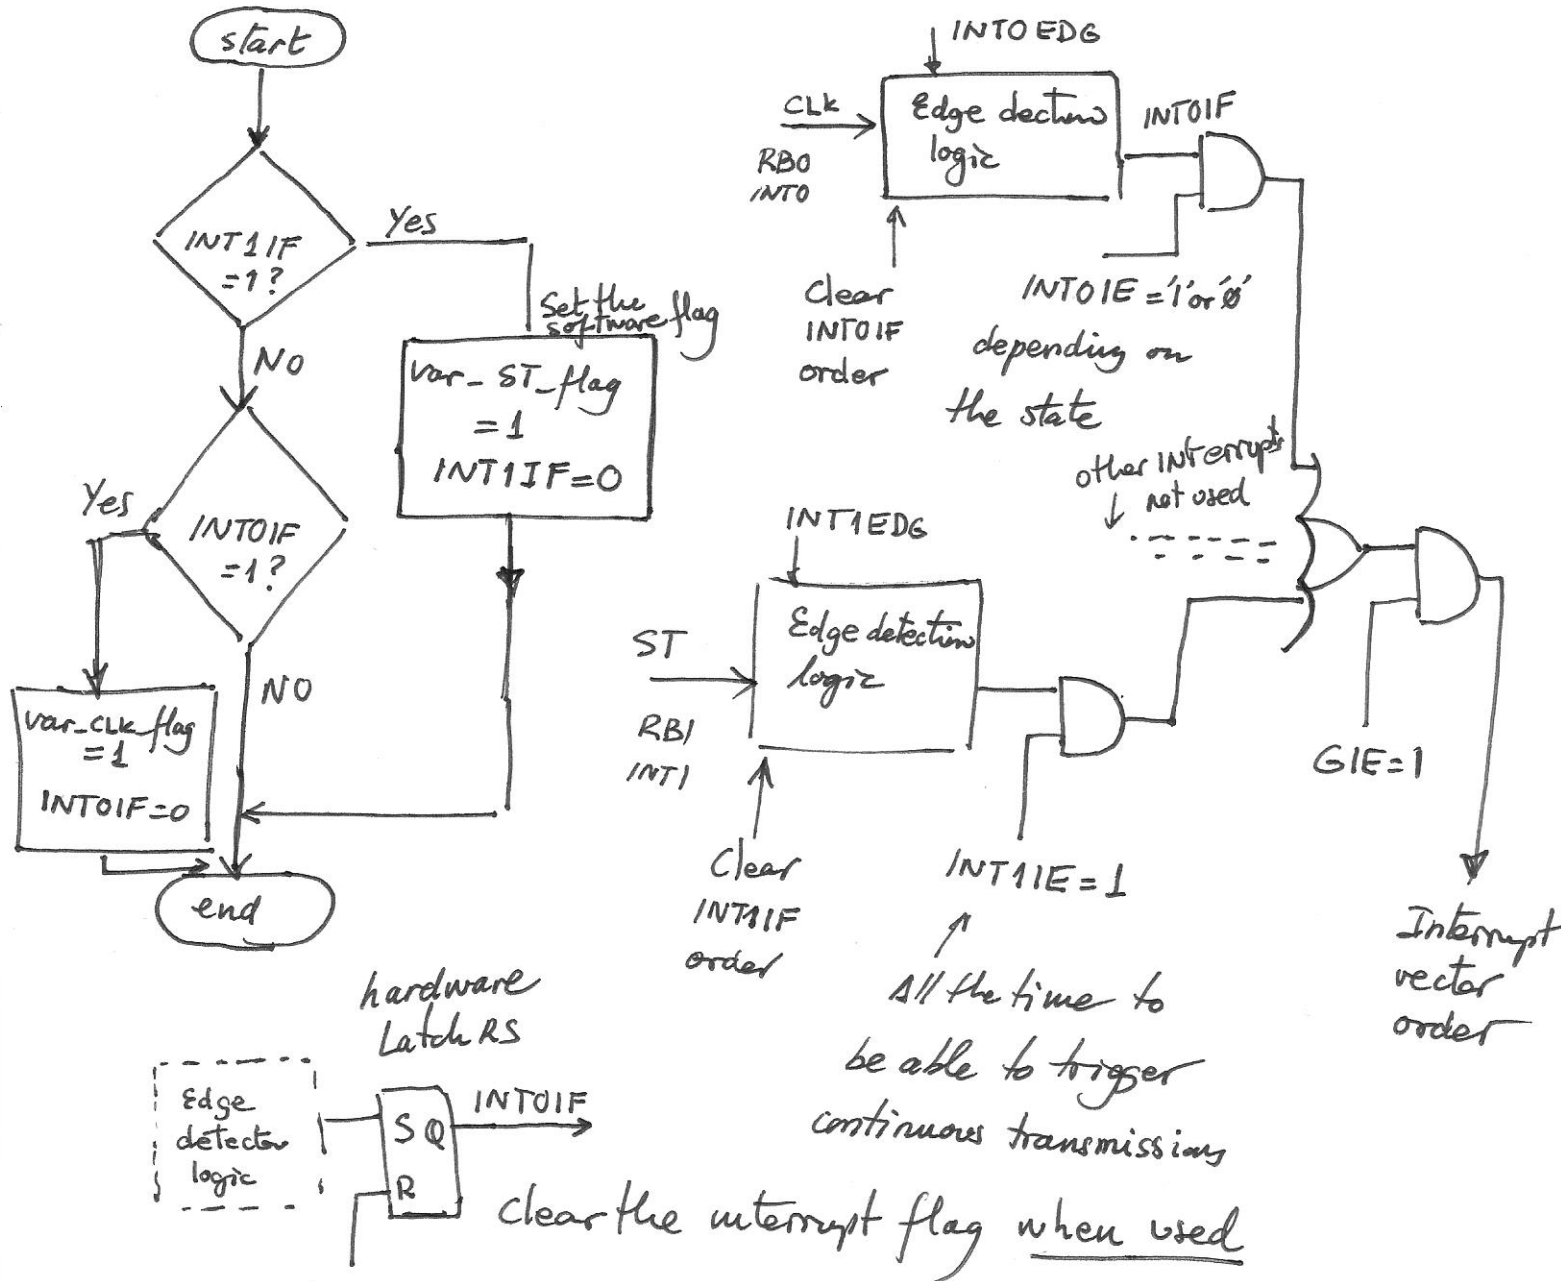 start
INT1IF
=1?
Yes
NO
Set the
software flag
var_ST_flag
=1
INT1IF=0
INT0IF
=1?
Yes
NO
var_CLK_flag
=1
INT0IF=0
end
INT0EDG
CLK
RB0
INT0
Edge dection
logic
INT0IF
Clear
INT0IF
order
INT0IE='1'or'0'
depending on
the state
other INTerrupts
not used
INT1EDG
ST
RB1
INT1
Edge detection
logic
Clear
INT1IF
order
INT1IE=1
GIE=1
All the time to
be able to trigger
continuous transmissions
Interrupt
vector
order
hardware
Latch RS
Edge
detector
logic
S Q
R
INT0IF
Clear the interrupt flag when used